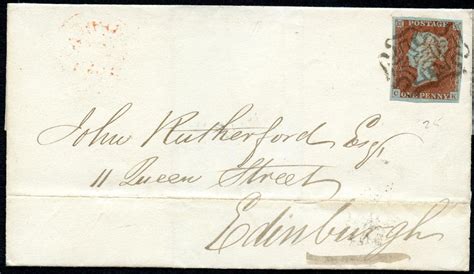 POSTAGE
C K
ONE PENNY
John Rutherford Esq.
11 Queen Street
Edinburgh